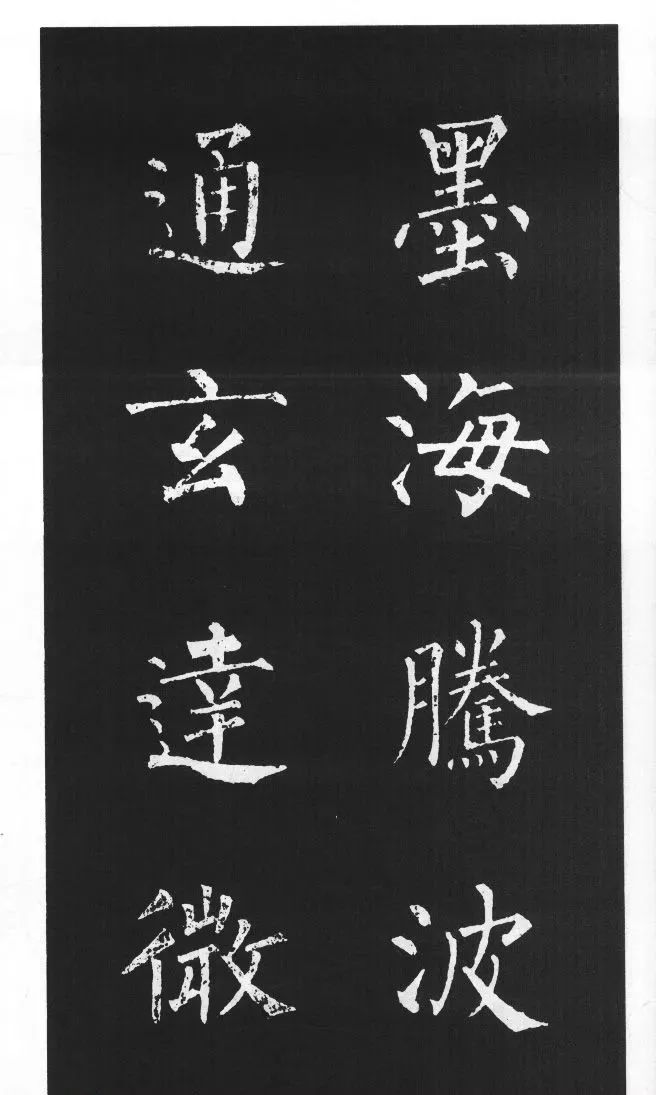 墨海騰波
通玄達微